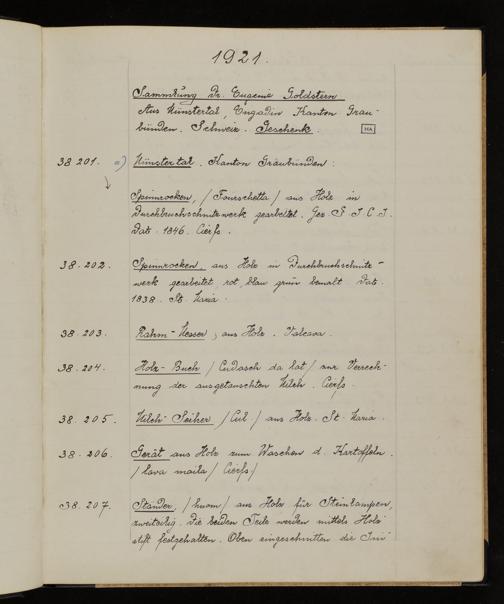 1921.
Sammlung Dr. Eugenie Goldstern
Aus Münstertal Engadin Kanton Grau-
bünden. Schweiz. Geschenk. HA
38.201. a) Münstertal. Kanton Graubünden:
Spinnrocken, /Fourschetta/ aus Holz in
Durchbruchschnitzwerk gearbeitet. Gez. S. J. C. J.
Dat. 1846. Cierfs.
38.202. Spinnrocken, aus Holz in Durchbruchschnitz-
werk gearbeitet, rot, blau grün bemalt. Dat.
1838. St. Maria.
38.203. Rahm-Messer, aus Holz. Valcava.
38.204. Holz-Buch /Cudasch da lat/ zur Verrech-
nung der ausgetauschten Milch. Cierfs.
38.205. Milch-Seiher /Cul/ aus Holz. St. Maria.
38.206. Gerät aus Holz zum Waschen d. Kartoffeln.
/lava maila/ Cierfs/
38.207. Ständer, /huom/ aus Holz für Steinlampen,
zweiteilig. Die beiden Teile werden mittels Holz
stift festgehalten. Oben eingeschnitten die Ini